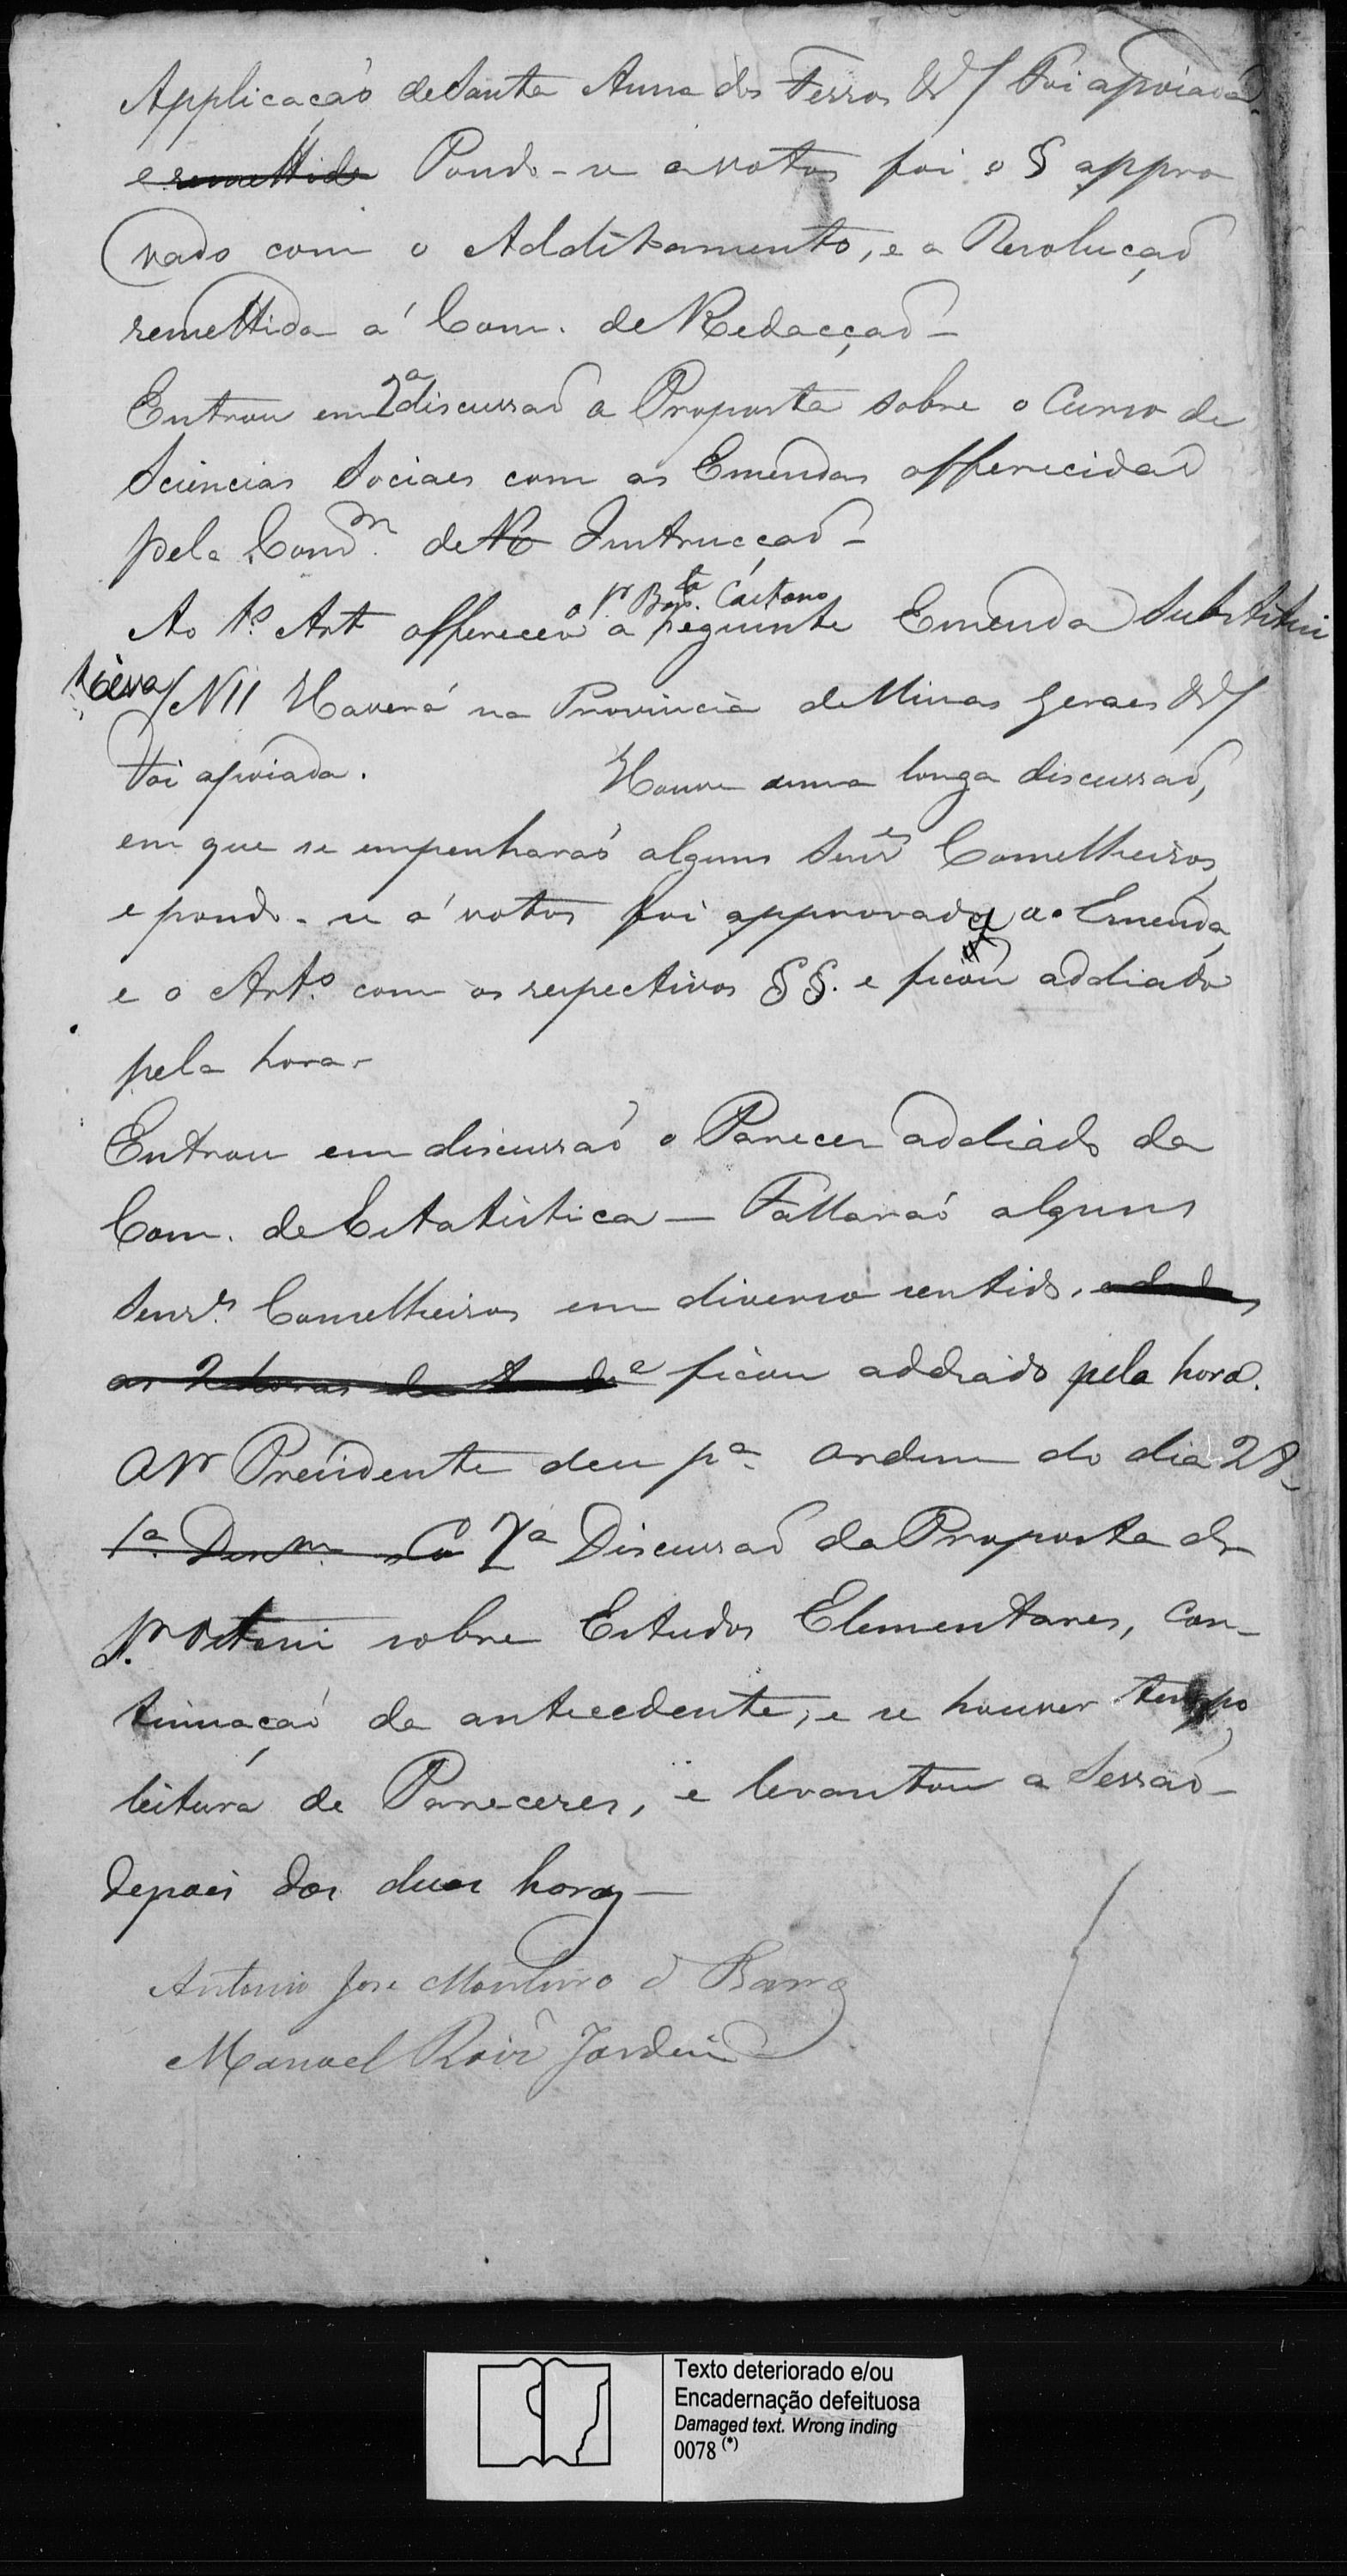 Applicaçaõ de Santa Anna dos Ferros &/ Foi apoiada
e remettida Pondo-se a votos foi o § appro
vado com o Additamento, e a Resoluçaõ
remettida á Com. de Redacçaõ -
Entrou em 2ª discussaõ a Proposta sobre o Curso de
Sciencias Sociaes com as Emendas offerecidas
pela Comm. de Re Instrucçaõ -
Ao 1º Art offereceo o Sr Bapta. Caetano a seguinte Emenda Substitui
tiva / N 11 Haverá na Provincia de Minas Geraes &/
Foi apoiada. Houve uma longa discussaõ,
em que se empenharaõ alguns Senres Conselheiros,
e pondo-se á votos foi approvada a Emenda,
e o Arto. com os respectivos §§. e ficou addiado
pela hora -
Entrou em discussaõ o Parecer addiado da
Com. de Estatistica — Fallaraõ alguns
Senrs. Conselheiros em diverso sentido,
as 2 horas da tarde e ficou addiado pela hora.
O Sr Presidente deu pª ordem do dia 28
1ª 2ª Discussaõ da Proposta do
Sr. Ottoni sobre Estudos Elementares, con-
tinuaçaõ da antecedente, e se houver tempo
leitura de Pareceres, e levantou a Sessaõ -
depois das duas horas —
Antonio José Monteiro de Barros
Manoel Roiz Jardim
Texto deteriorado e/ou
Encadernação defeituosa
Damaged text. Wrong inding
0078 (*)